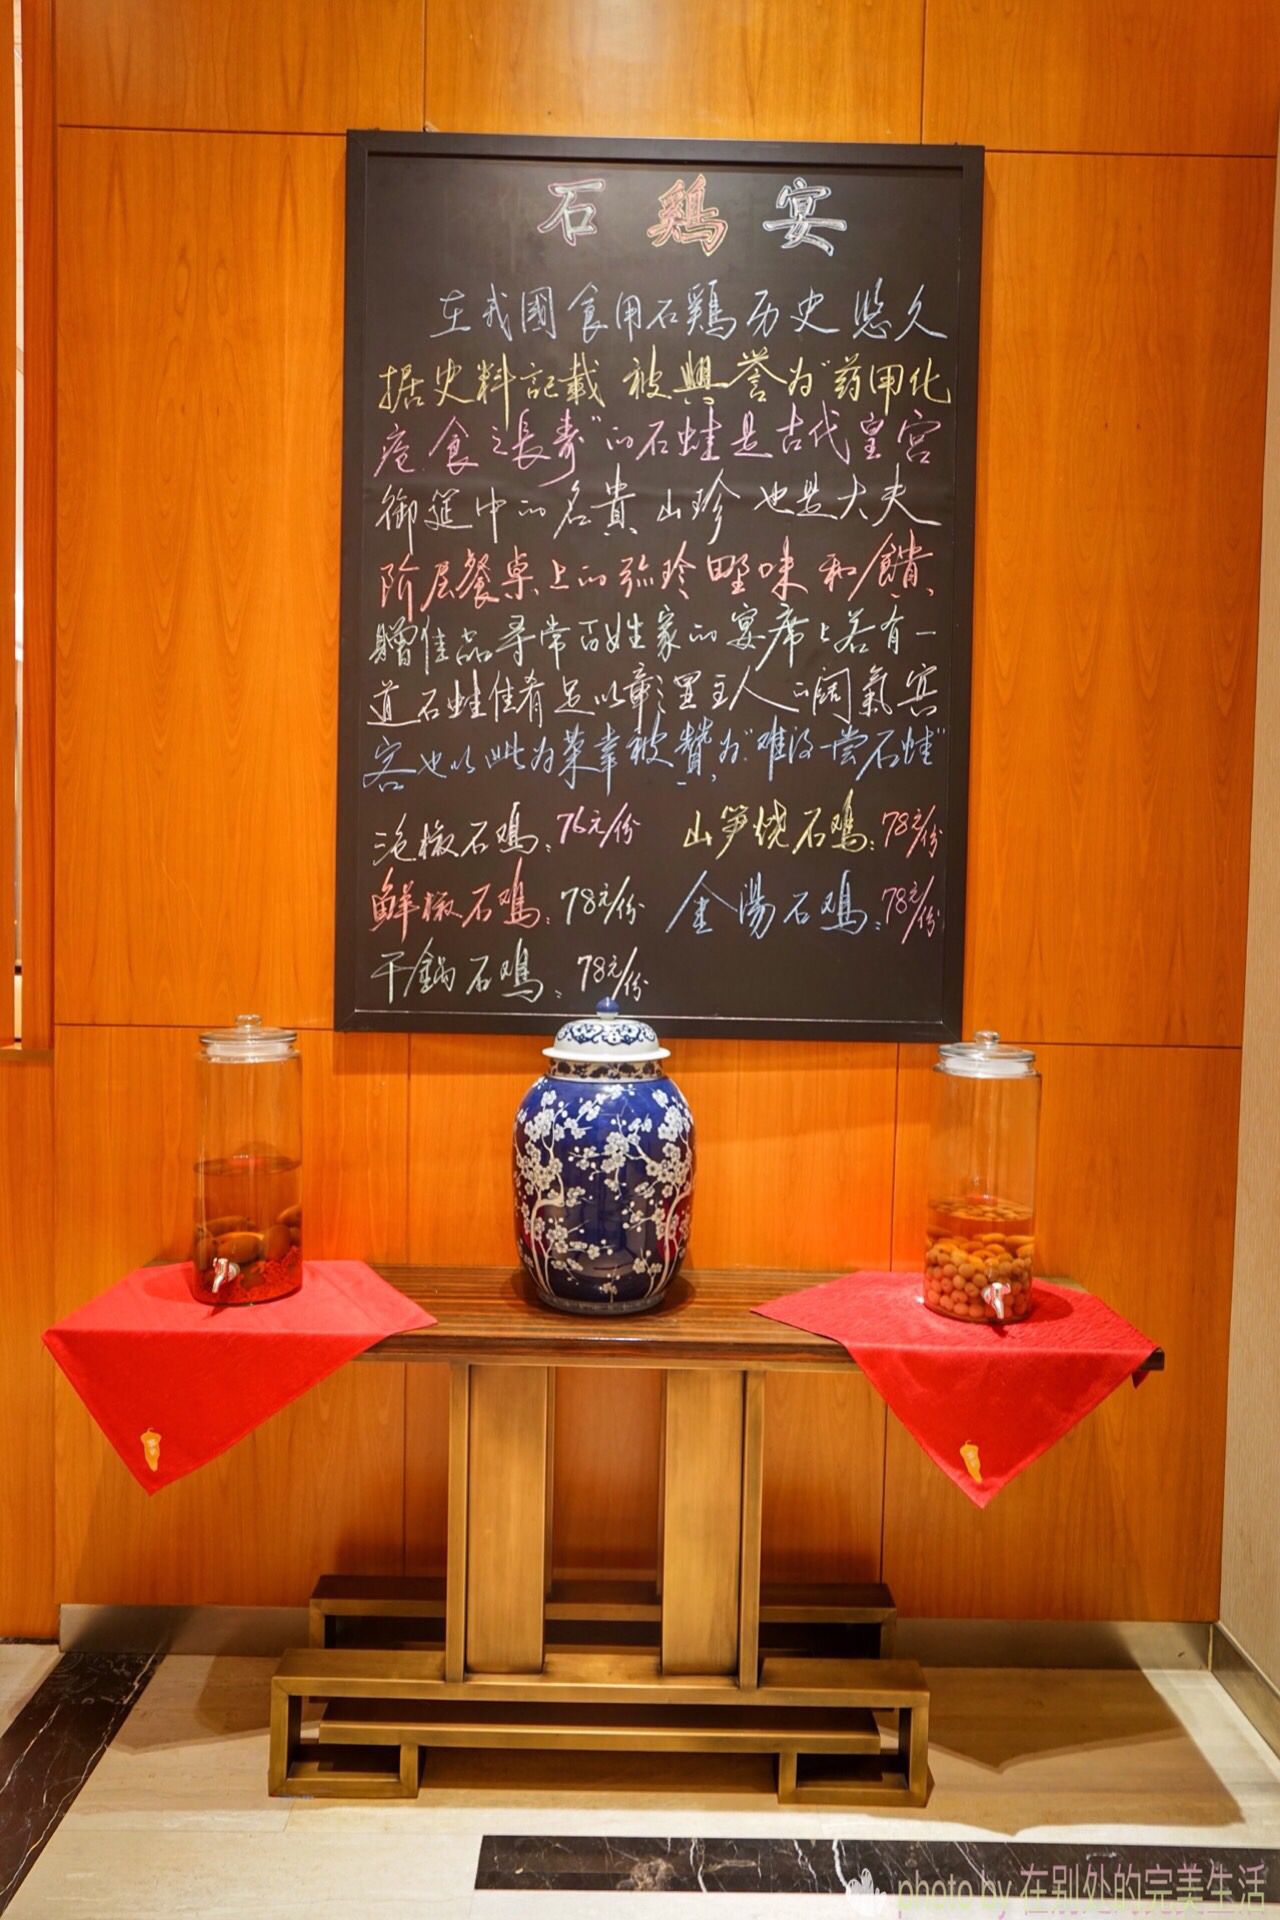 石鷄宴
在我國食用石鷄历史悠久
据史料記載 被興誉为"药用化
疮.食之長寿"的石蛙是古代皇宫
御筵中的名貴山珍 也是大夫
阶层餐桌上的弥珍野味和饋
贈佳品寻常百姓家的宴席上若有一
道石蛙佳肴足以彰显主人的闊氣宾
客也以此为菜幸被贊为"难没尝石蛙"
泡椒石鸡:76元/份 山笋烧石鸡:78元/份
鲜椒石鸡:78元/份 金湯石鸡:78元/份
干鍋石鸡:78元/份
photo by 在别处的完美生活